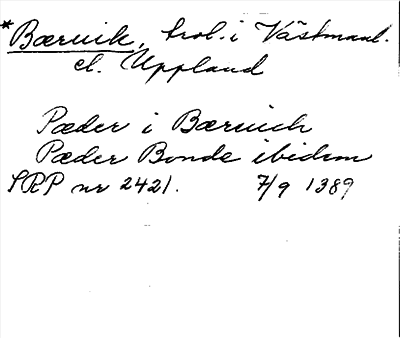 *Bærvik, trol. i Västmanl.
el. Uppland
Pæder i Bærvich
Pæder Bonde ibidem
SRP nr 2421. 7/9 1389